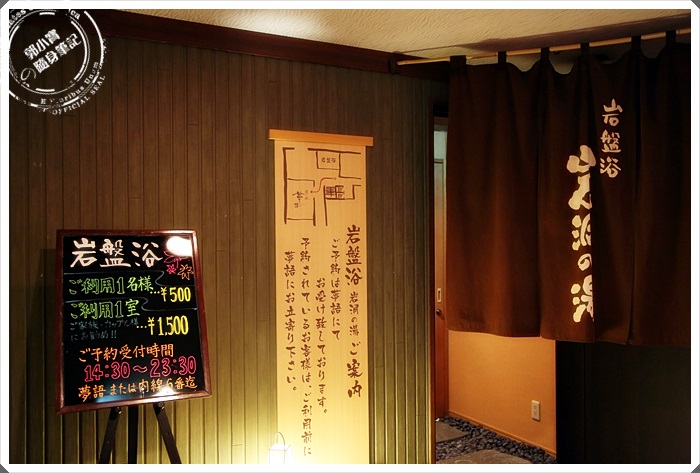 郭小寶
の
隨身筆記
OFFICIAL SEAL
岩盤浴
ご利用1名様…¥500
ご利用1室
…¥1,500
ご家族・カップル様
にお勧め!!
ご予約受付時間
14:30～23:30
夢語または内線6番迄
岩盤浴 岩洞の湯 ご案内
ご予約は夢語にて
お受け致しております。
予約されているお客様は、ご利用前に
夢語にお立寄り下さい。
岩盤浴
岩洞の湯